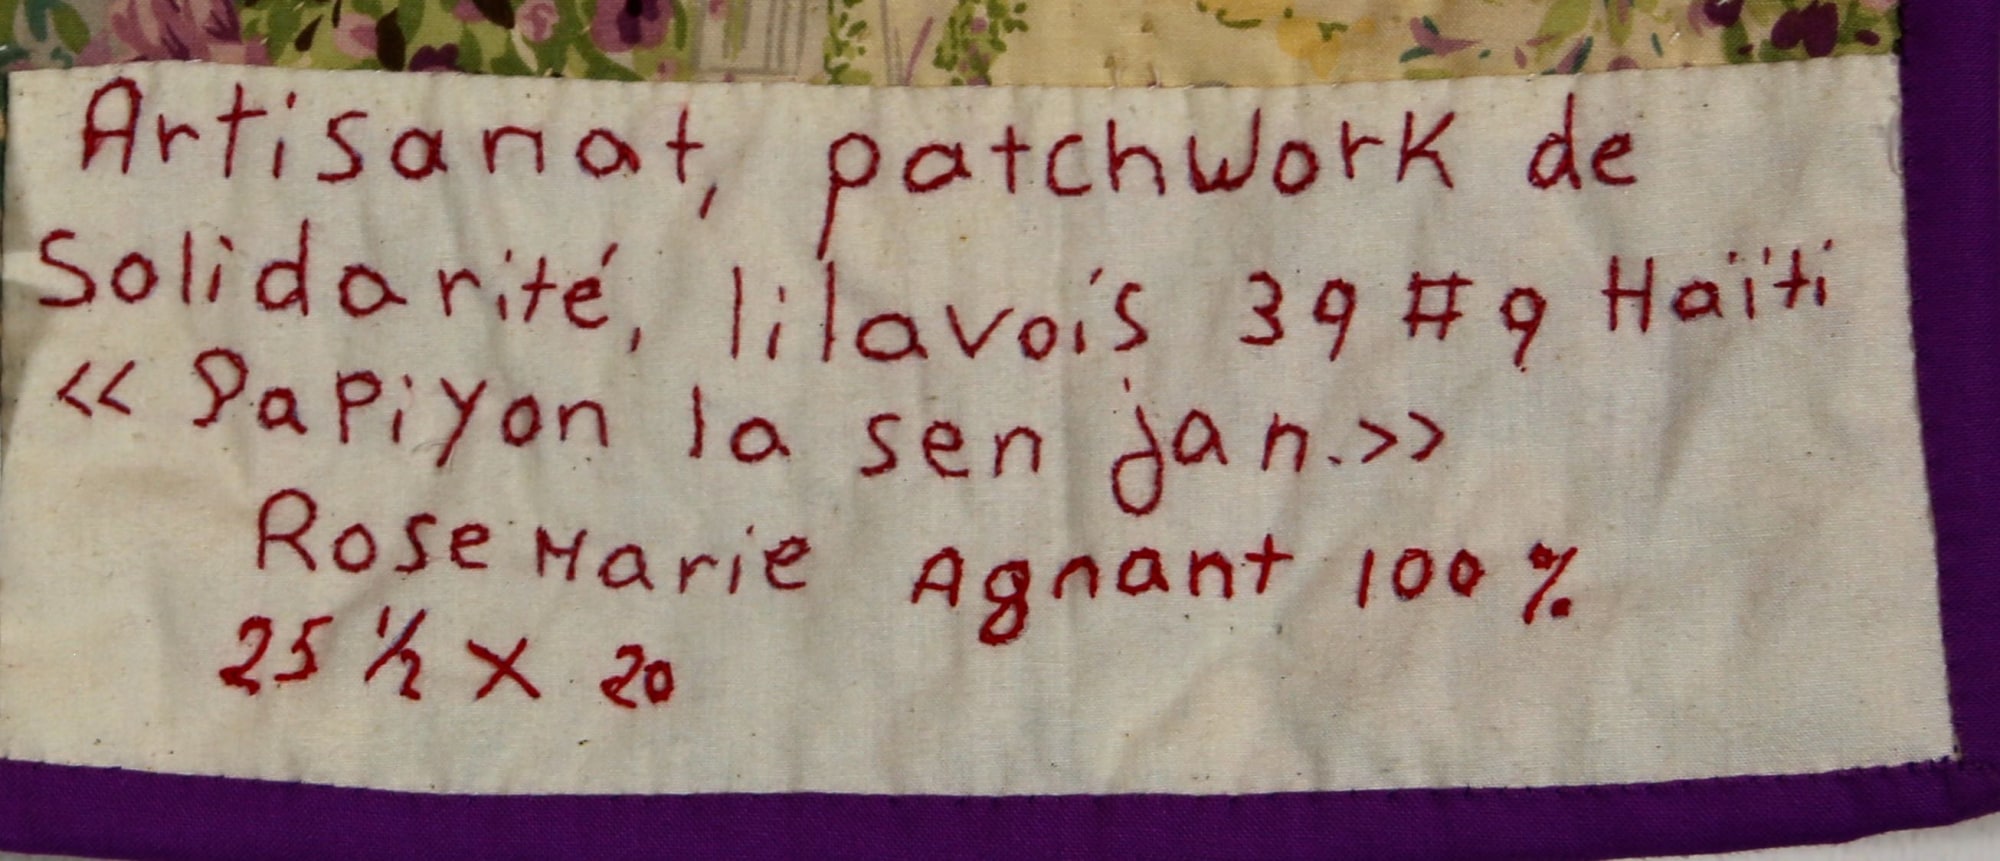 Artisanat, patchwork de
Solidarité, lilavois 39 #9 Haïti
<< Papiyon la sen jan.>>
Rose Marie Agnant 100 %
25 1/2 X 20